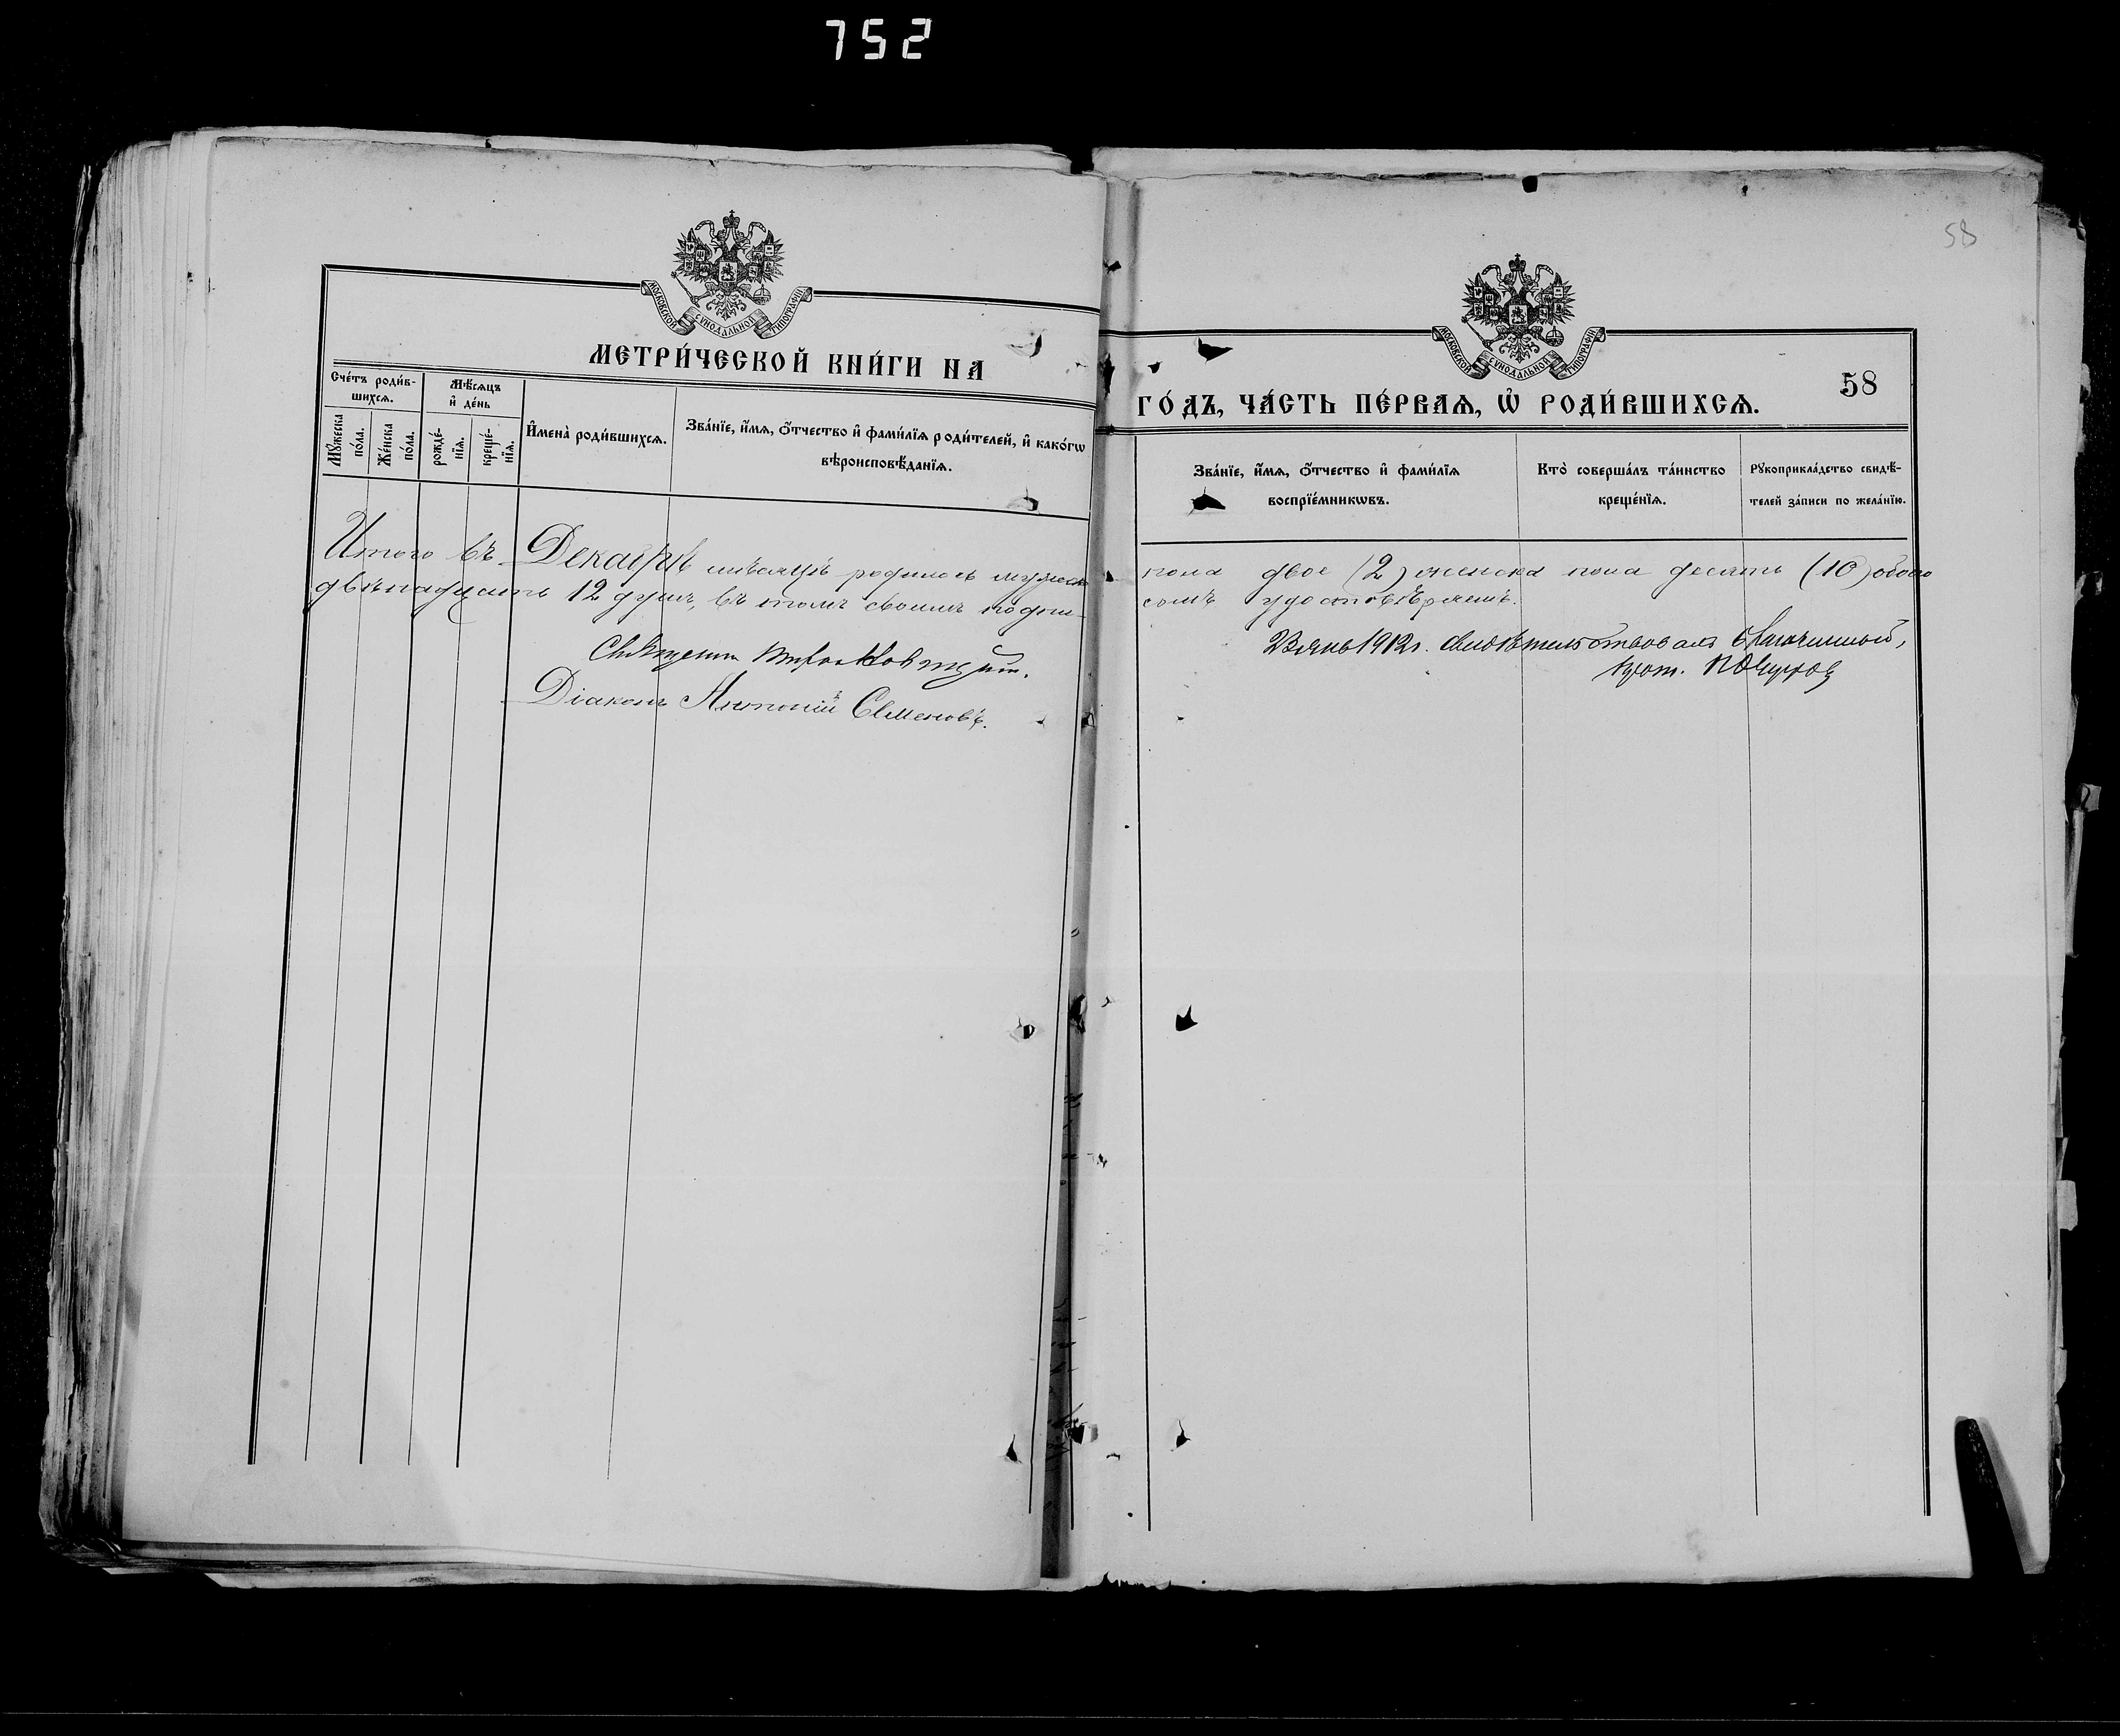 752
58
МОСКОВСКОЙ СѴНОДАЛЬНОЙ ТИПОГРАФІИ
МЕТРИ́ЧЕСКОЙ КНИ́ГИ НА
Сче́тъ роди́в-
шихсѧ.
Мѣ́сѧцъ
и҆ де́нь
И҆мена̀ роди́вшихсѧ.
Зва́нїе, и҆́мѧ, ѻ҆́тчество и҆ фами́лїѧ роди́телей, и҆ како́гѡ
вѣроисповѣ́данїѧ.
Мꙋ́жеска
по́ла.
Же́нска
по́ла.
рожде́-
нїѧ.
креще́-
нїѧ.
Итого въ Декабрѣ мѣсяцѣ родилось мужеска
двѣнадцать 12 душъ, въ томъ своимъ подпи-
Діаконъ Антоній Семеновъ.
МОСКОВСКОЙ СѴНОДАЛЬНОЙ ТИПОГРАФІИ
ГО́ДЪ, ЧА́СТЬ ПЕ́РВАѦ, Ѡ҆ РОДИ́ВШИХСѦ.
58
Зва́нїе, и҆́мѧ, ѻ҆́тчество и҆ фами́лїѧ
воспрїе́мникѡвъ.
Кто̀ соверша́лъ та́инство
креще́нїѧ.
Рꙋкоприкла́дство свидѣ́-
телей за́писи по жела́нїю.
пола двое (2) женска пола десять (10) обоего
сомъ удостовѣряемъ.
1912г. свидѣтельствовалъ благочинный,
прот.